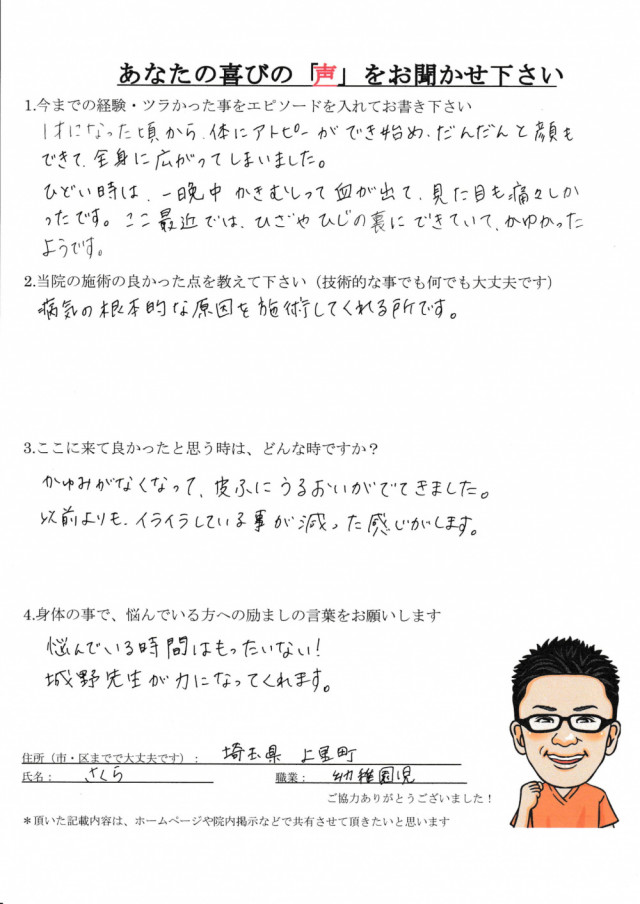 あなたの喜びの「声」をお聞かせ下さい
1.今までの経験・ツラかった事をエピソードを入れてお書き下さい
1才になった頃から、体にアトピーができ始め、だんだんと顔も
できて、全身に広がってしまいました。
ひどい時は、一晩中かきむしって血が出て、見た目も痛々しか
ったです。ここ最近では、ひざやひじの裏にできていて、かゆかった
ようです。
2.当院の施術の良かった点を教えて下さい（技術的な事でも何でも大丈夫です）
病気の根本的な原因を施術してくれる所です。
3.ここに来て良かったと思う時は、どんな時ですか？
かゆみがなくなって、皮ふにうるおいがでてきました。
以前よりも、イライラしている事が減った感じがします。
4.身体の事で、悩んでいる方への励ましの言葉をお願いします
悩んでいる時間はもったいない！
城野先生が力になってくれます。
住所（市・区までで大丈夫です）： 埼玉県 上里町
氏名： さくら 職業： 幼稚園児
ご協力ありがとうございました！
＊頂いた記載内容は、ホームページや院内掲示などで共有させて頂きたいと思います